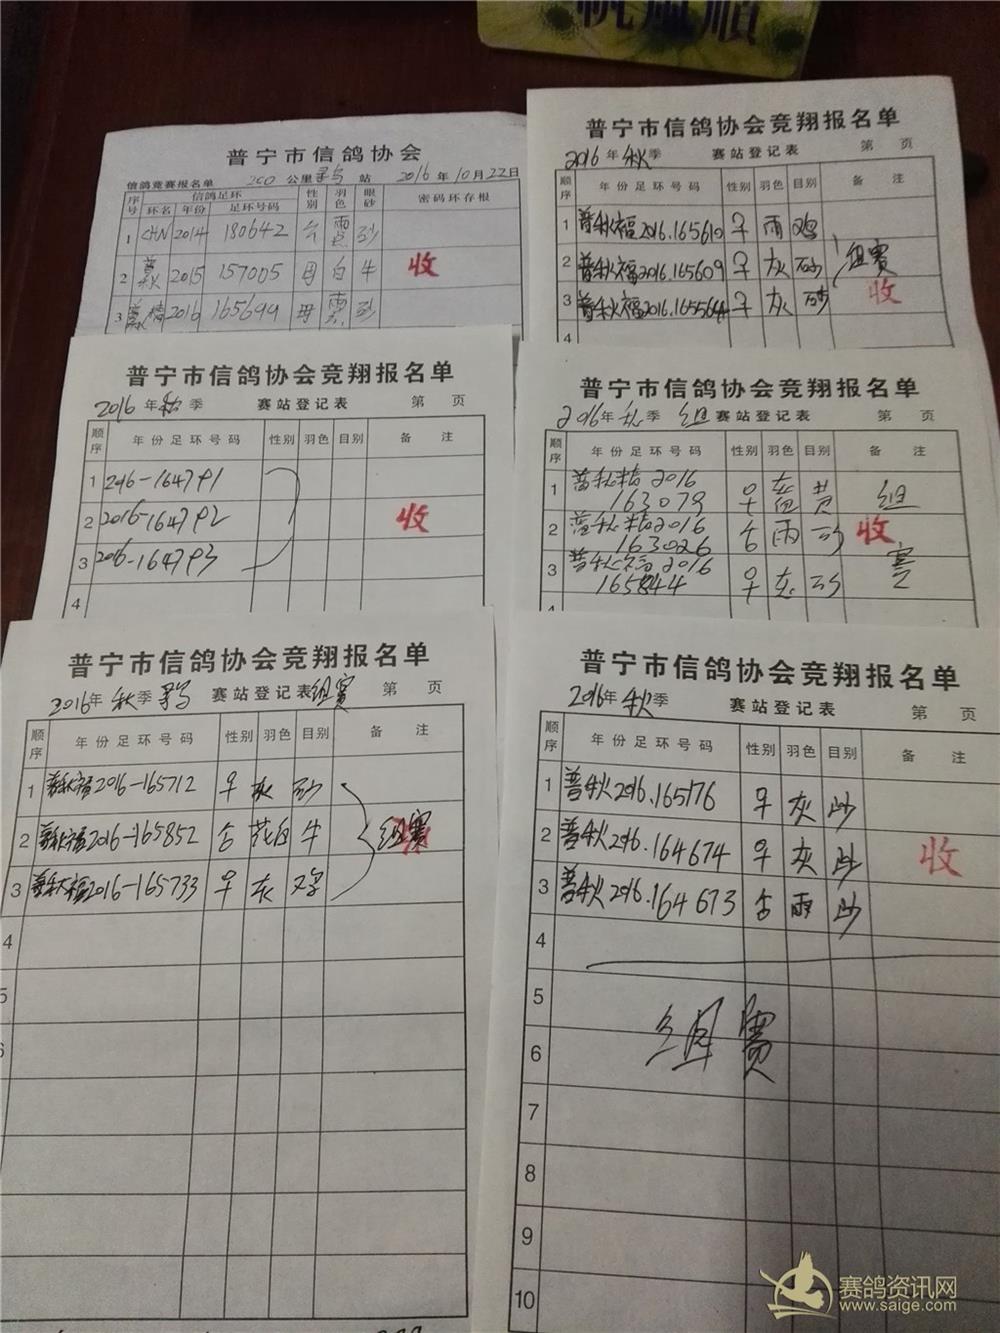 普宁市信鸽协会
信鸽竞赛报名单 200 公里 寻乌 站 2016 年 10 月 22 日
序号 信鸽足环 性别 羽色 眼砂 密码环存根
环名 年份 足环号码
1 CHN 2014 180642 雨点 砂
2 普秋 2015 157005 母 白 牛 收
3 2016 165699 母 砂
普宁市信鸽协会竞翔报名单
2016 年 秋 季 赛站登记表 第 页
顺序 年份足环号码 性别 羽色 目别 备 注
1 普秋福2016.165610 早 雨 鸡
2 普秋福2016.165609 早 灰 砂 组赛
3 普秋福2016.165564 早 灰 砂 收
4
普宁市信鸽协会竞翔报名单
2016 年 秋 季 赛站登记表 第 页
顺序 年份足环号码 性别 羽色 目别 备 注
1 2016-1647P1
2 2016-1647P2 收
3 2016-1647P3
4
普宁市信鸽协会竞翔报名单
2016 年 秋 季 组 赛站登记表 第 页
顺序 年份足环号码 性别 羽色 目别 备 注
1 普秋精 2016
163079 早 黄 组
2 普秋精2016
163026 雨 砂 收
3 普秋福 2016
165844 早 灰 砂 赛
4
普宁市信鸽协会竞翔报名单
2016 年 秋 季 寻乌 赛站登记表 组赛 第 页
顺序 年份足环号码 性别 羽色 目别 备 注
1 普秋福2016-165712 早 灰 砂
2 普秋福2016-165852 花白 牛 组赛 收
3 普秋福2016-165733 早 灰
4
5
6
普宁市信鸽协会竞翔报名单
2016 年 秋 季 赛站登记表 第 页
顺序 年份足环号码 性别 羽色 目别 备 注
1 普秋2016.165176 早 灰 砂
2 普秋2016.164674 早 灰 砂 收
3 普秋2016.164673 雨 砂
4
5
6 组赛
7
8
9
10
赛鸽资讯网
www.saige.com